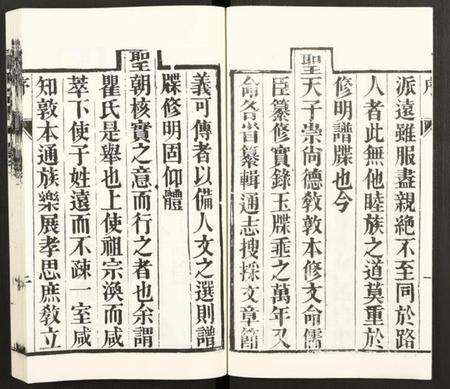 序
派遠雖服盡親絶不至同於路
人者此無他睦族之道莫重於
修明譜牒也今
聖天子崇尚德敎敦本修文命儒
臣纂修實錄玉牒垂之萬年又
命各省纂輯通志搜採文章節
義可傳者以備人文之選則譜
牒修明固仰體
聖朝核實之意而行之者也余謂
瞿氏是舉也上使祖宗渙而咸
萃下使子姓遠而不疎一室咸
知敦本通族樂展孝思庶敎立
序
二